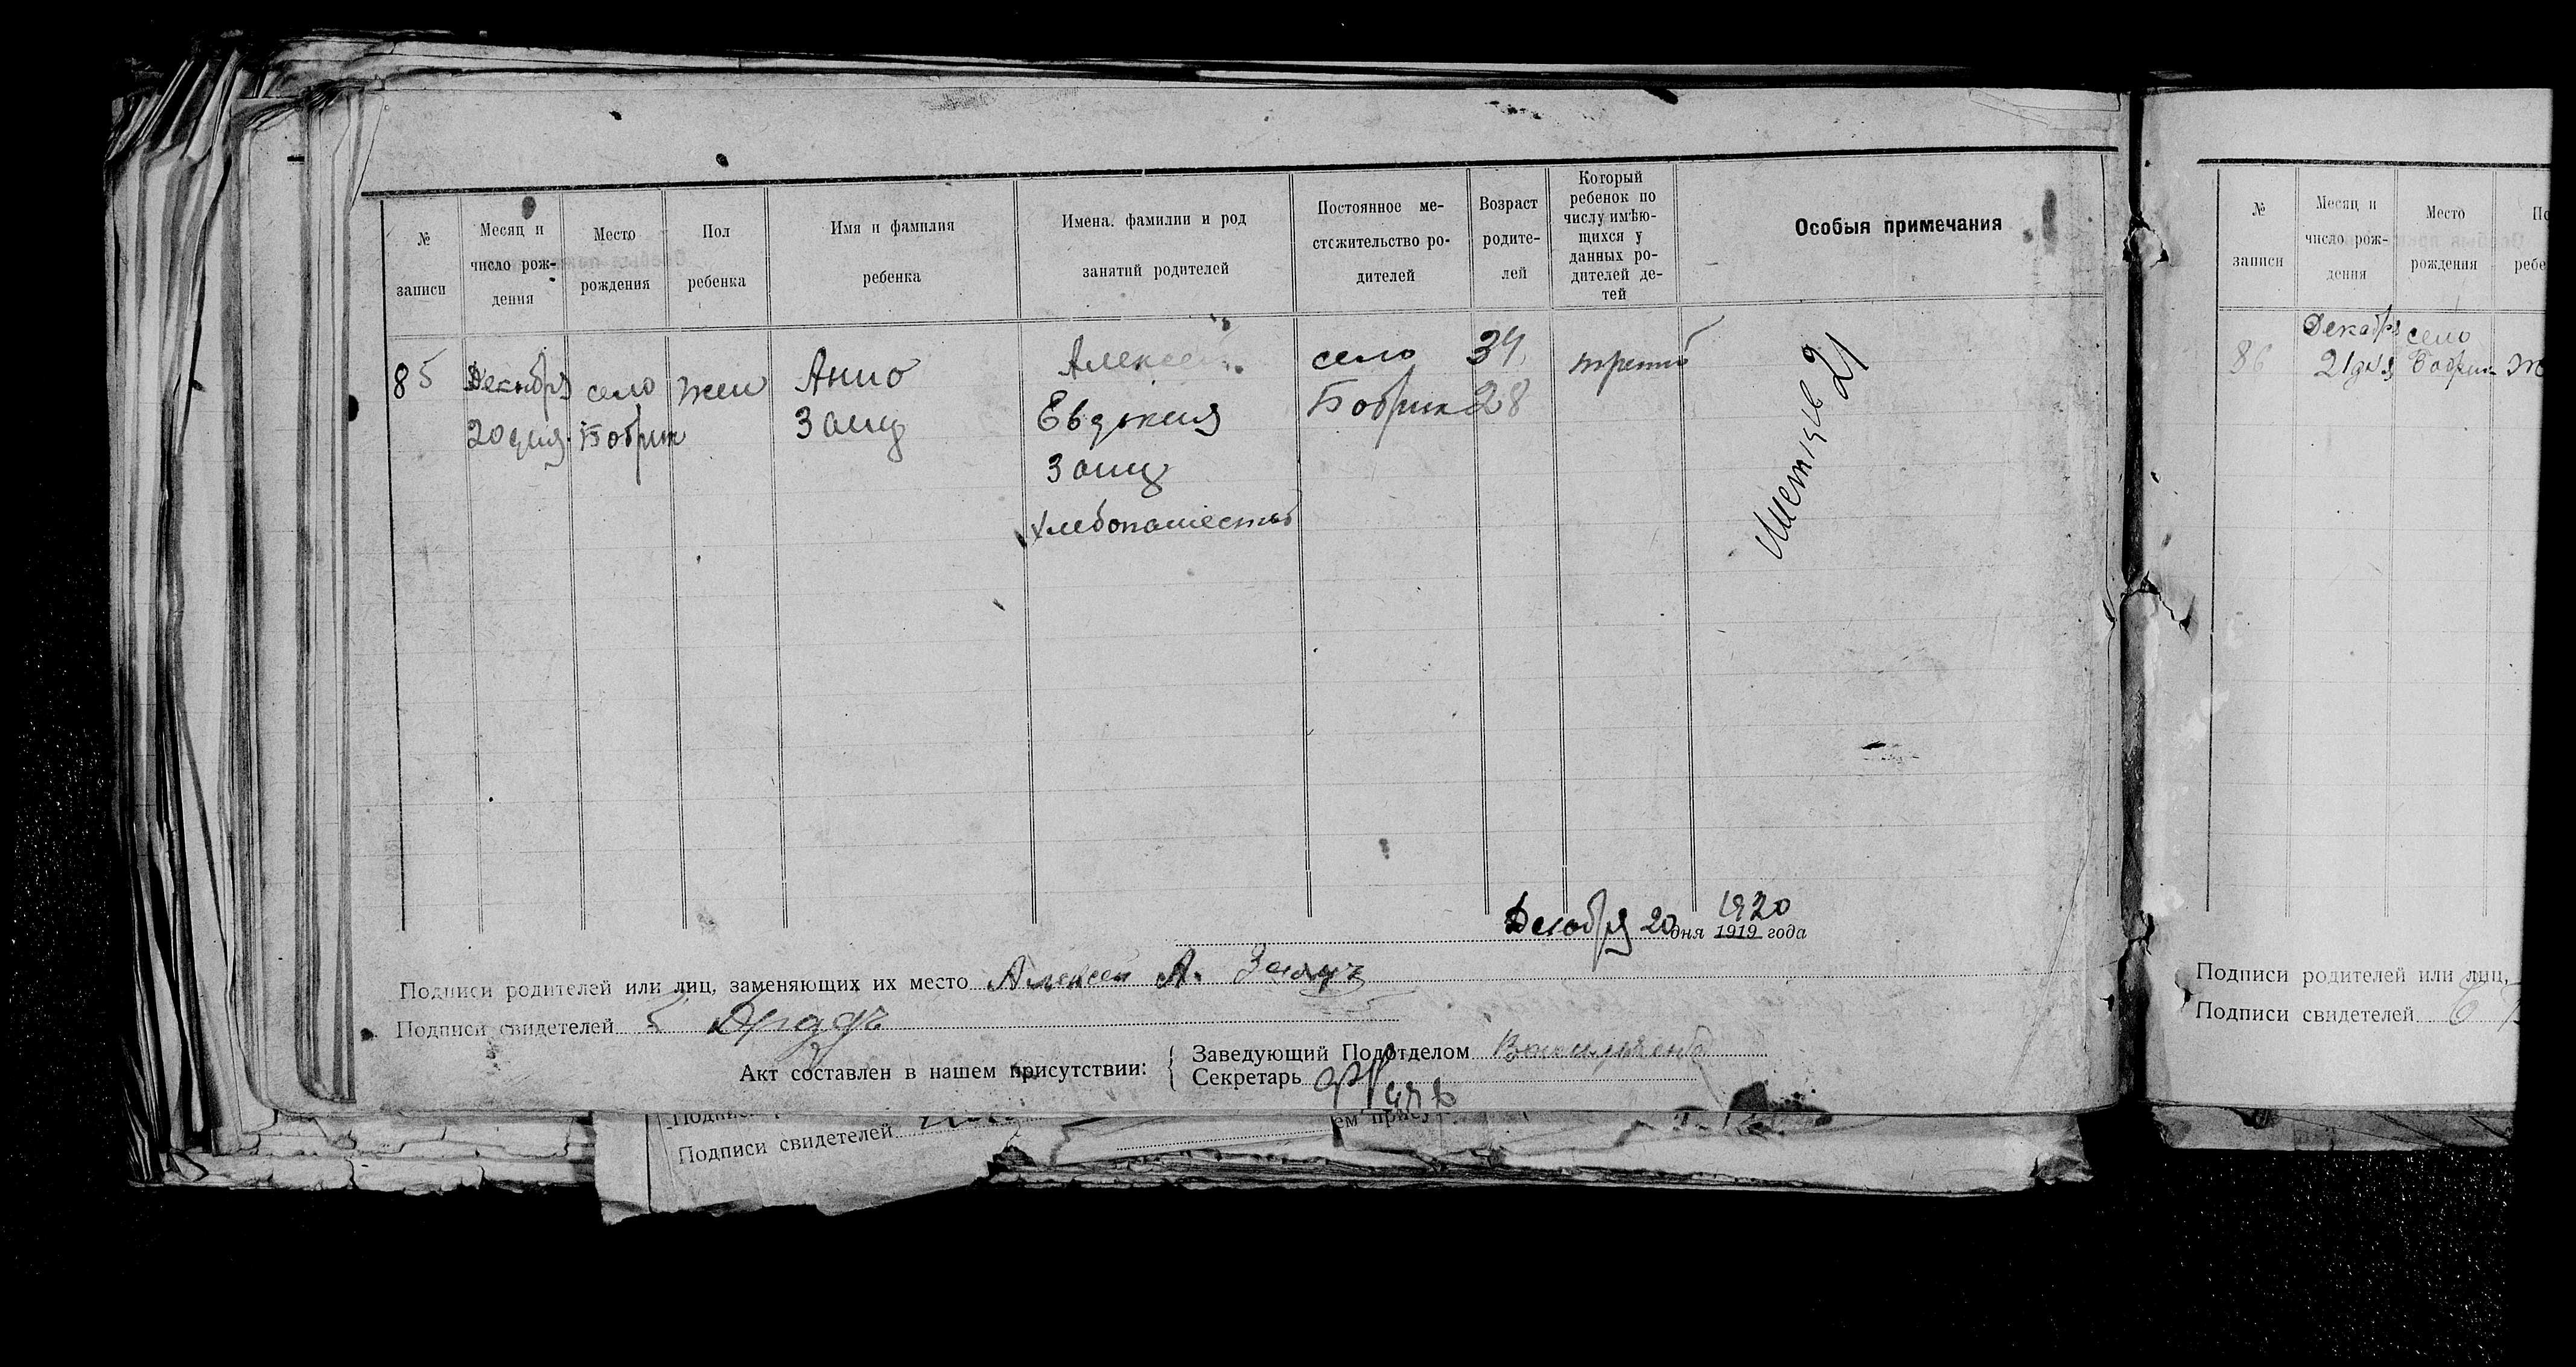 № записи
Месяц и число рож-дения
Место рождения
Пол ребенка
Имя и фамилия ребенка
Имена. фамилии и род занятий родителей
Постоянное ме-стожительство ро-дителей
Возраст родите-лей
Который ребенок по числу имѣю-щихся у данных ро-дителей де-тей
Особыя примечания
85
Декабря 20 дня
село Бобрик
жен
Анна Заиц
Алексей
Евдокия
Заиц
Хлебопашество
село Бобрик
34
28
третий
21
Декабря 20 дня 1920 1919 года
Подписи родителей или лиц, заменяющих их место Алексей А. Заяцъ
Подписи свидетелей
Акт составлен в нашем присутствии:
Заведующий Подотделом
Секретарь
Подписи свидетелей
ем прису
№ записи
Месяц и число рож-дения
Место рождения
По ребе
86
Декабря 21 дня
село Бобрик
Подписи родителей или лиц,
Подписи свидетелей